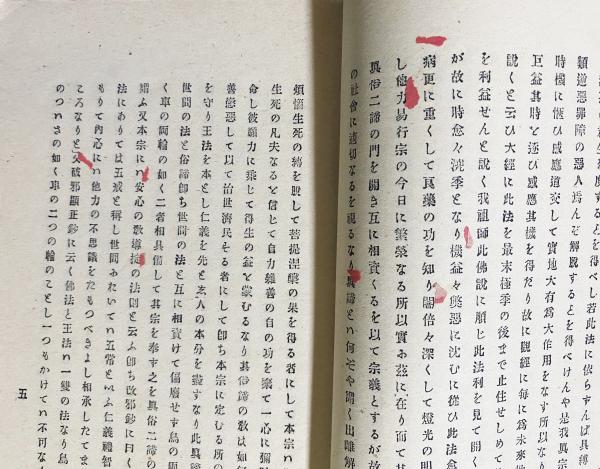 類道惡罪障の惡人爲んぞ解脫するとを得べけんや是我眞宗
時機に愜ひ感應道交して實地大有爲大作用をなす所以な
巨益其時と逐ひ感應其機を得だり故に觀經に每に爲未來世
說くと云ひ大經に此法を最末極季の後まで止住せしめて
を利益せんと說く我祖師此佛說に順じ此法利を見て開く
が故に時愈々澆季となり機益々獘惡に沈むに從ひ此法愈
病更に重くして良藥の功を知り闇倍々深くして燈光の明
し他力易行宗の今日に繁榮なる所以實に玆に在り而て其
眞俗二諦の門を開き互に相資くるを以て宗義とするが故
の社會に適切なるを視るなり眞諦とハ何ぞや謂く出離解
煩惱生死の縛を脫して菩提涅槃の果を得る者にして本宗ハ
生死の凡夫なると信じて自力雜善の自の功を棄て一心に彌
命し彼願力に乘じて得生の益と蒙むるなり其俗諦の敎は如何
善愼惡して以て治世濟民そる者にして卽ち本宗に定むる所の
を守り王法を本とし仁義を先と爲人の本分を盡すなり此眞諦
世間の法と俗諦卽ち世間の法と互に相資けて偏廢せず鳥の兩
く車の兩輪の如く二者相具備して其宗を奉ず之を眞俗二諦の
婦ふ又本宗にハ安心の敎導掟の法則と云ふ卽ち改邪鈔に曰く
法にありては五戒と稱し世間ふたいてハ五常とハふ仁義禮智
もりて內心にハ他力の不思議をたもつべきよし相承したてま
ころなりと又破邪顯正鈔に云く佛法と王法ハ一雙の法なり鳥
のつハさの如く車の二つの輪のことし一つもかけてハ不可な
五